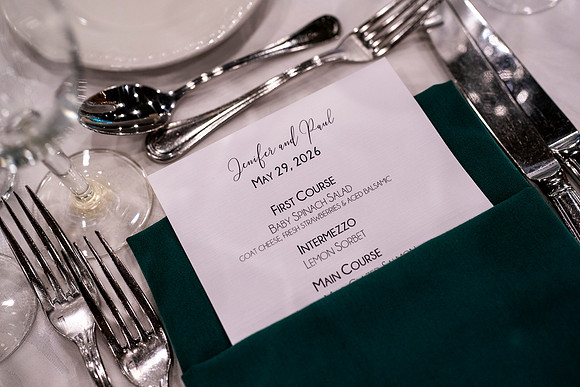 Jenifer and Paul
May 29, 2026
First Course
Baby Spinach Salad
Goat Cheese, Fresh Strawberries & Aged Balsamic
Intermezzo
Lemon Sorbet
Main Course
Salmon